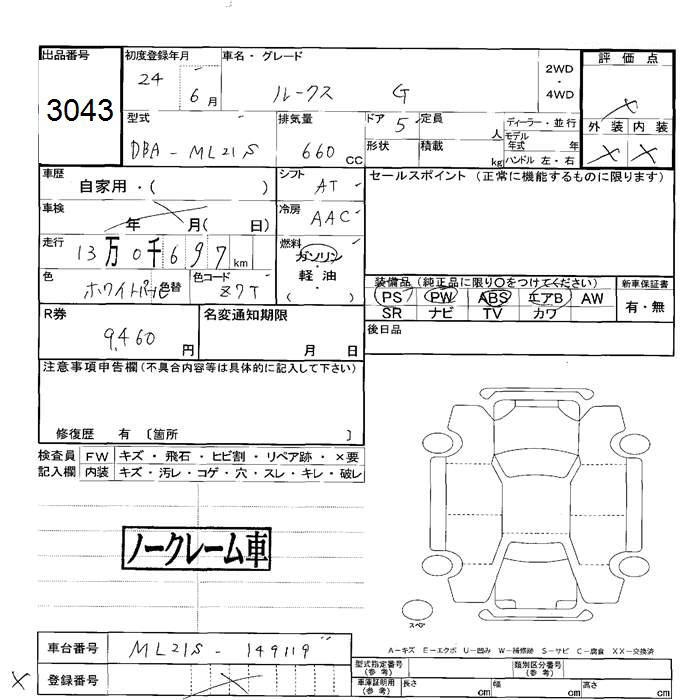 出品番号
3043
初度登録年月
24
6月
車名・グレード
ルークス G
2WD
・
4WD
評価点
外装 内装
型式
DBA-ML21S
排気量
660 CC
ドア 5
定員
人
形状
積載
kg
ディーラー・並行
モデル
年式 年
ハンドル 左・右
車歴
自家用・( )
シフト
AT
車検
年 月( 日)
冷房
AAC
走行
13万0千697km
燃料
ガソリン
・
軽油
( )
色
ホワイトパール
色替
色コード
Z7T
セールスポイント (正常に機能するものに限ります)
装備品 (純正品に限り○をつけてください)
PS PW ABS エアB AW
SR ナビ TV カワ
新車保証書
有・無
後日品
R券
9,460
円
名変通知期限
月 日
注意事項申告欄(不具合内容等は具体的に記入して下さい)
修復歴 有 〔箇所 〕
検査員 FW キズ・飛石・ヒビ割・リペア跡・×要
記入欄 内装 キズ・汚レ・コゲ・穴・スレ・キレ・破レ
ノークレーム車
スペア
A-キズ E-エクボ U-凹み W-補修跡 S-サビ C-腐食 XX-交換済
車台番号
ML21S-149119
登録番号
型式指定番号
(参考)
類別区分番号
(参考)
車庫証明用
(参考)
長さ cm 幅 cm 高さ cm